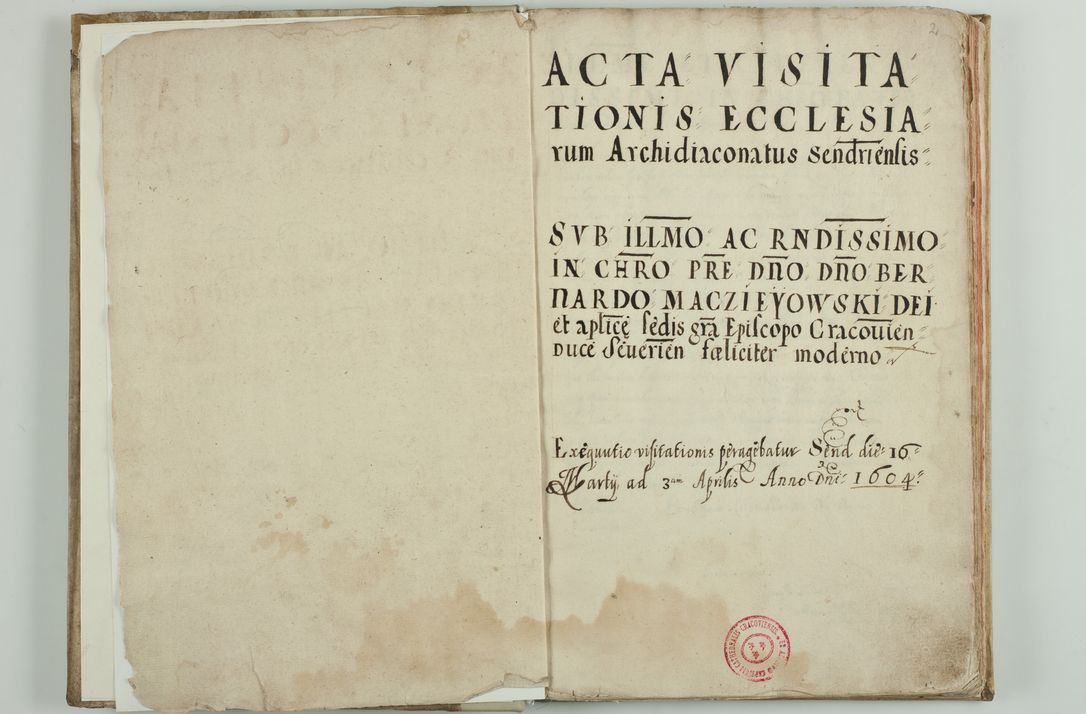 2
ACTA VISITA
TIONIS ECCLESIA
rum Archidiaconatus Sendriensis
SVB ILLMO AC RNDISSIMO
IN CHRO PRE DNO DNO BER
NARDO MACZIEYOWSKI DEI
et aplice sedis gra Episcopo Cracouien
Duce Seuerien fæliciter moderno
Exequutio visitationis peragebatur Send die 16
Martij ad 3am Aprilis Anno Dni 1604